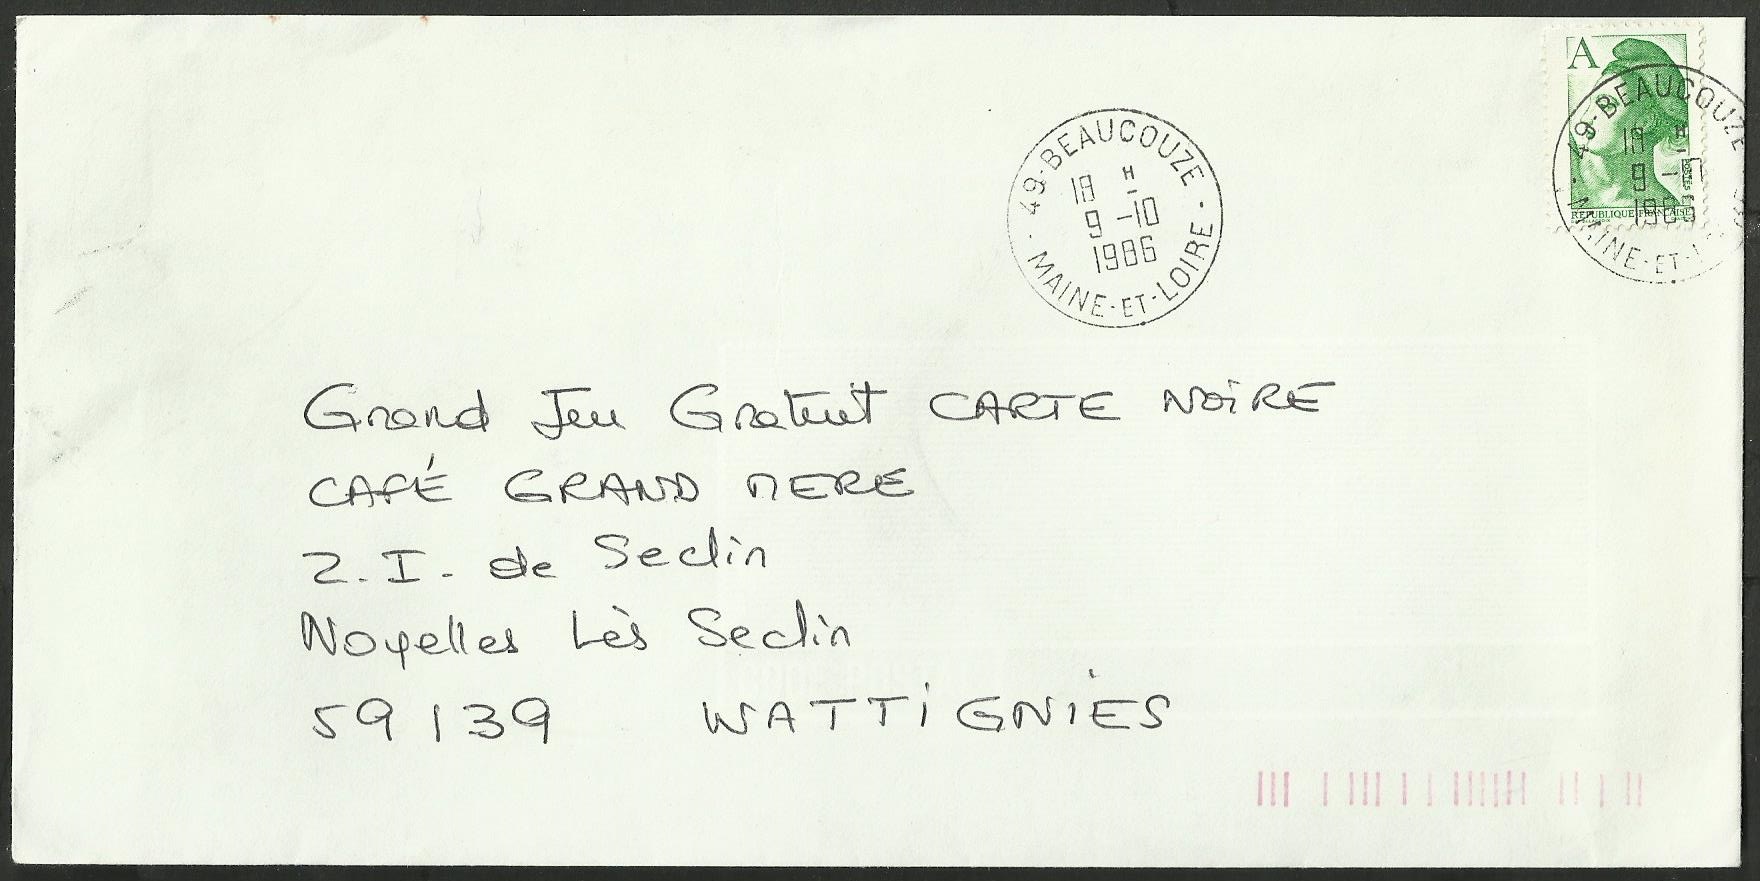 A
RÉPUBLIQUE FRANÇAISE
49-BEAUCOUZE
18 H
9 -10
1986
MAINE-ET-LOIRE
49-BEAUCOUZE
18 H
9 -1
1986
MAINE-ET-L
Grand Jeu Gratuit CARTE NOiRE
CAFÉ GRAND MERE
Z.I. de Seclin
Noyelles Lès Seclin
59139 WATTiGNiES